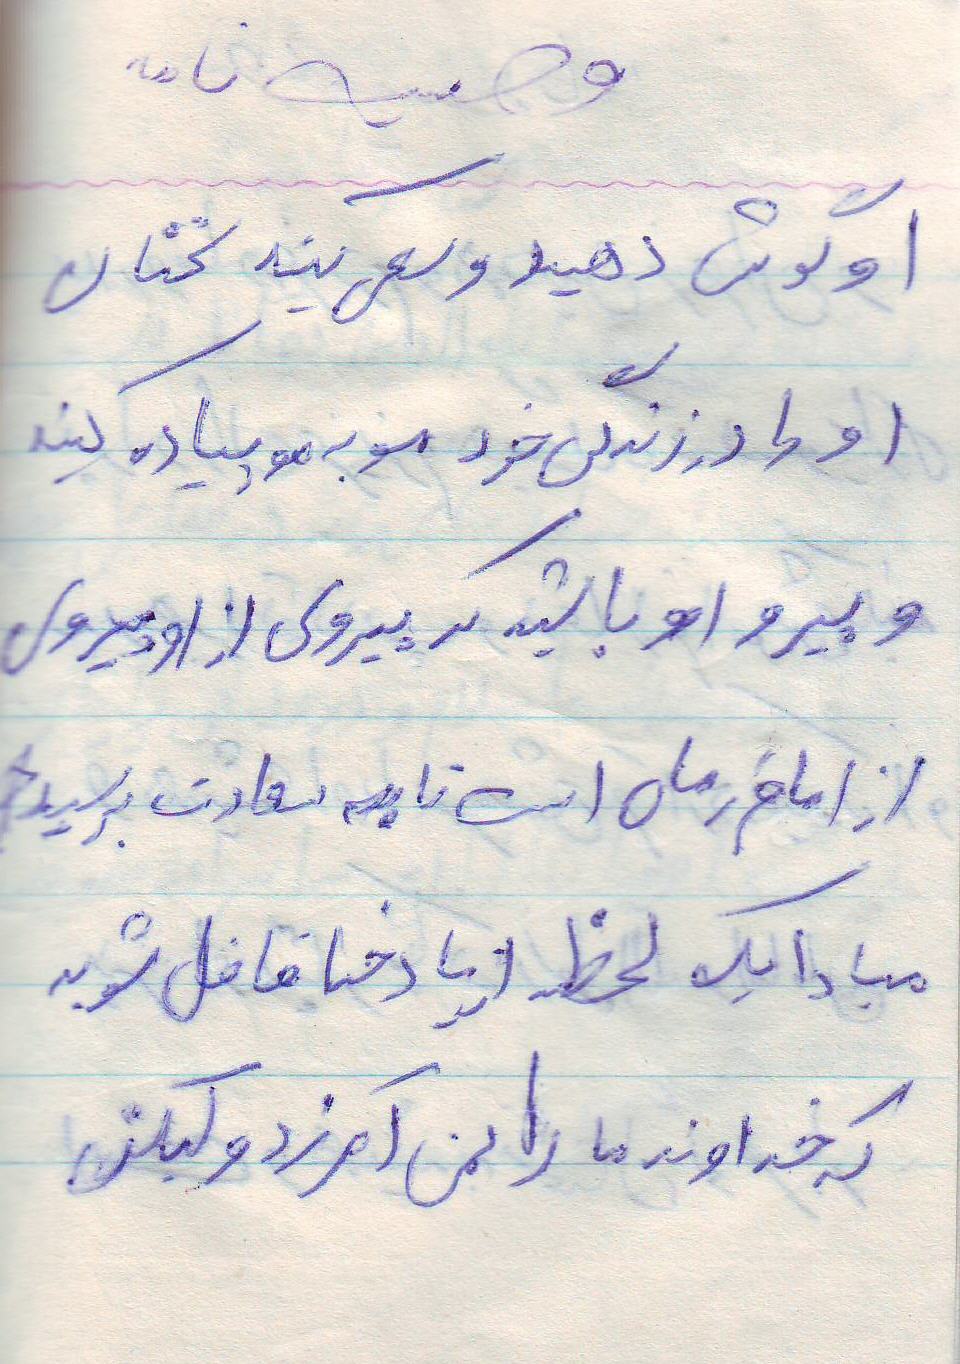 وصیت نامه
او گوش دهید و سعی کنید سخنان
او را در زندگی خود مو به مو پیاده کنید
و پیرو او باشید که پیروی از او پیروی
از امام زمان است تا به سعادت برسید
مبادا یک لحظه از یاد خدا غافل شوید
که خداوند ما را نمی آمرزد و لیکن